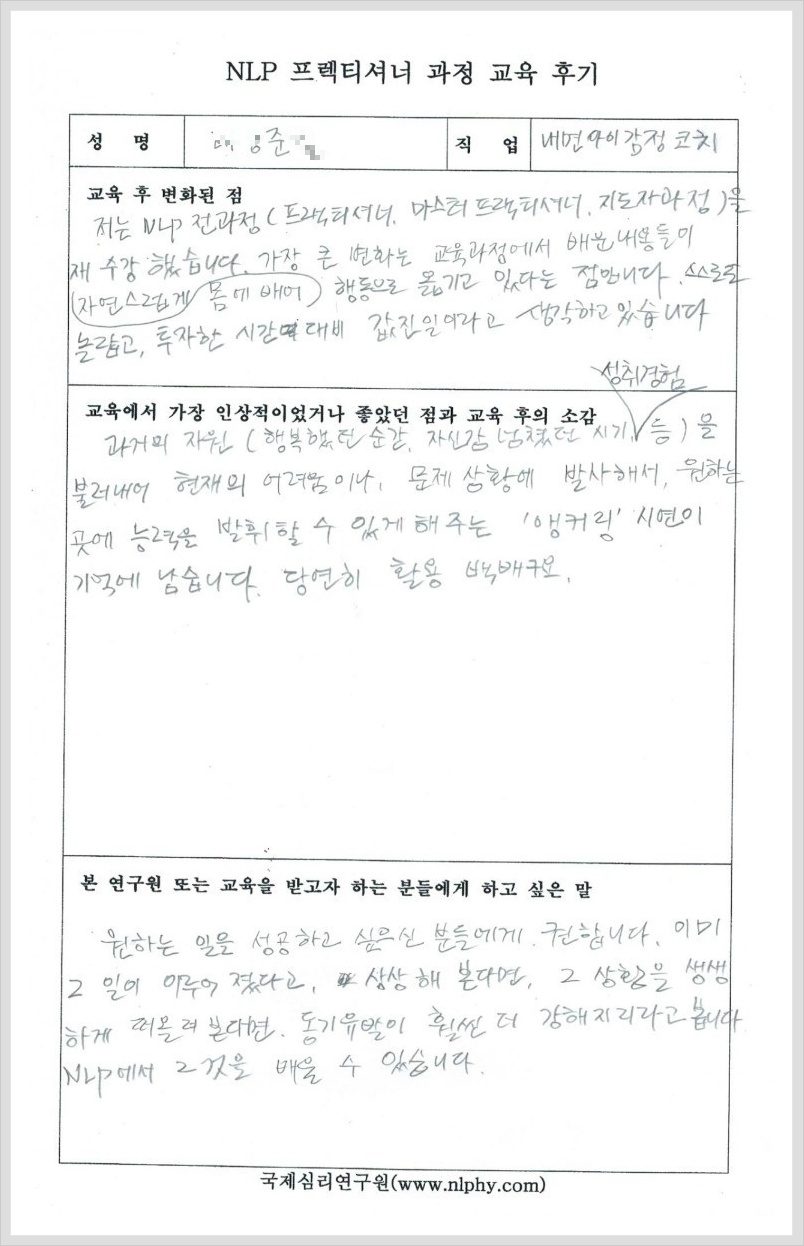 NLP 프렉티셔너 과정 교육 후기
성 명 준 직 업 내면아이감정코치
교육 후 변화된 점
저는 NLP 전과정(프랙티셔너, 마스터프랙티셔너, 지도자과정)을
재 수강 했습니다. 가장 큰 변화는 교육과정에서 배운내용들이
(자연스럽게 몸에 배어) 행동으로 옮기고 있다는 점입니다. 스스로도
놀랍고, 투자한 시간 대비 값진일이라고 생각하고 있습니다
성취경험
교육에서 가장 인상적이었거나 좋았던 점과 교육 후의 소감
과거의 자원 (행복했던 순간, 자신감 넘쳤던 시기, 등)을
불러내어 현재의 어려움이나, 문제 상황에 발사해서, 원하는
곳에 능력을 발휘할 수 있게 해주는 '앵커링' 시연이
기억에 남습니다. 당연히 활용 백배구요.
본 연구원 또는 교육을 받고자 하는 분들에게 하고 싶은 말
원하는 일을 성공하고 싶으신 분들에게. 권합니다. 이미
그 일이 이루어 졌다고, 상상해 본다면, 그 상황을 생생
하게 떠올려 본다면. 동기유발이 훨씬 더 강해지리라고 봅니다
NLP에서 그것을 배울 수 있습니다.
국제심리연구원(www.nlphy.com)